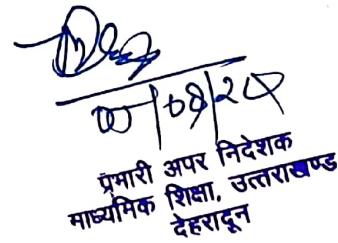 प्रभारी अपर निदेशक
माध्यमिक शिक्षा, उत्तराखण्ड
देहरादून